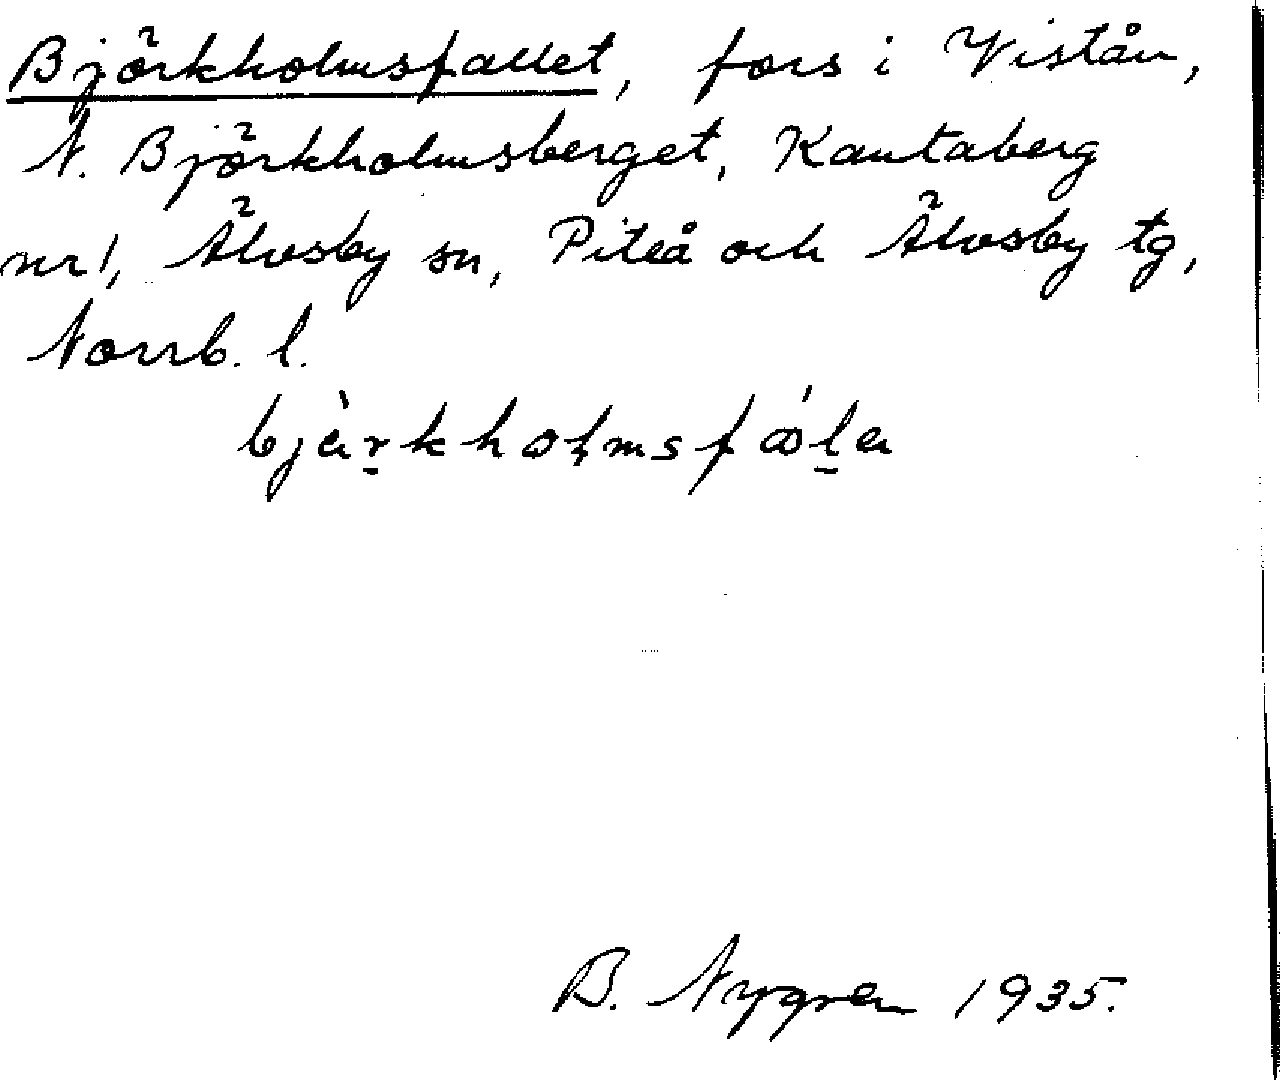 Björkholmsfallet, fors i Vistån,
N. Björkholmsberget, Kantaberg
nr 1, Älvsby sn, Piteå och Älvsby tg,
Norrb. l.
bjὰr̲khoɫmsfǻl̲a
B. Nygren 1935.